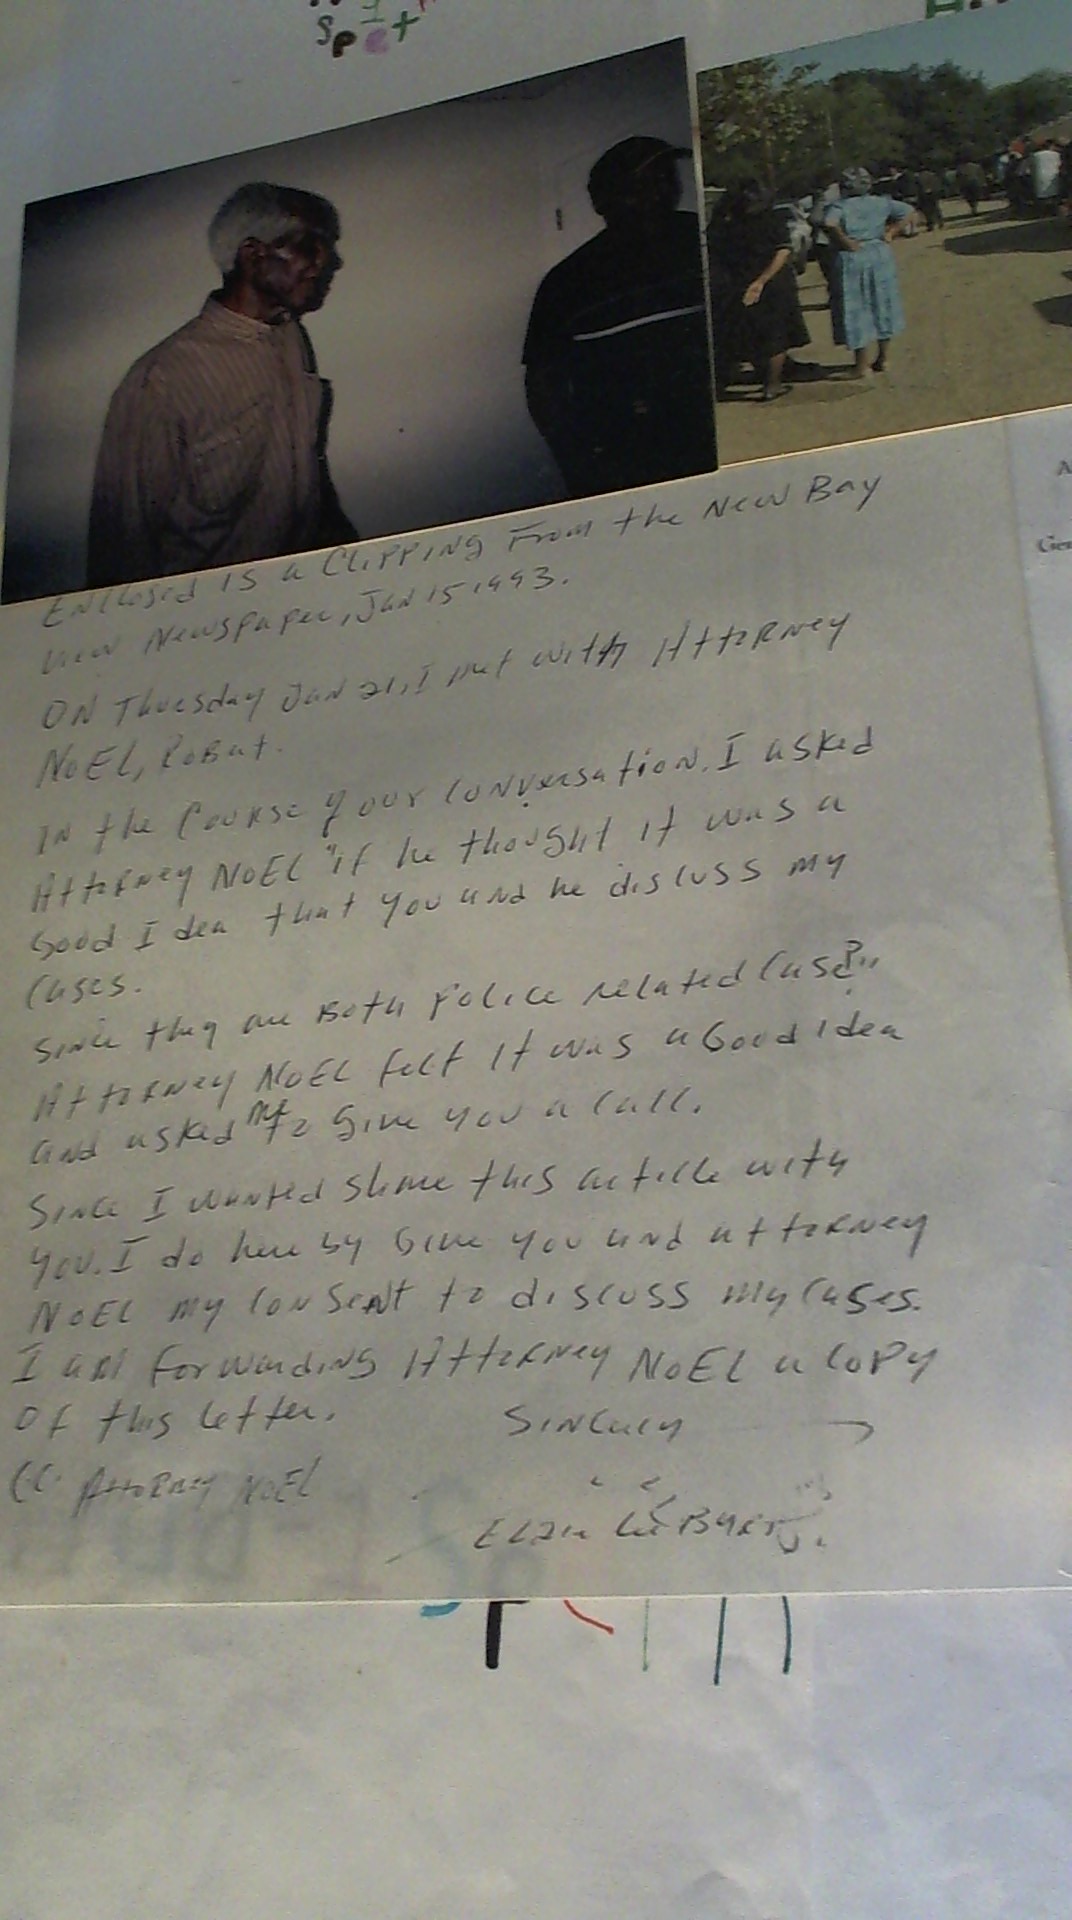 Spet
Enclosed is a Clipping From the New Bay
View Newspaper, Jan 15 1993.
ON Thursday Jan 21, I met with Attorney
NOEL, Robert.
IN the Course of our conversation, I asked
Attorney NOEL "if he thought it was a
Good Idea that you and he discuss my
cases.
Since they are Both police related Case?"
Attorney NOEL felt it was a Good idea
and asked me to Give you a call.
Since I wanted share this article with
you. I do here by Give you and attorney
NOEL my consent to discuss my cases.
I am forwarding Attorney NOEL a copy
of this letter.
Sincerely
CC Attorney NOEL
Lee
Ger